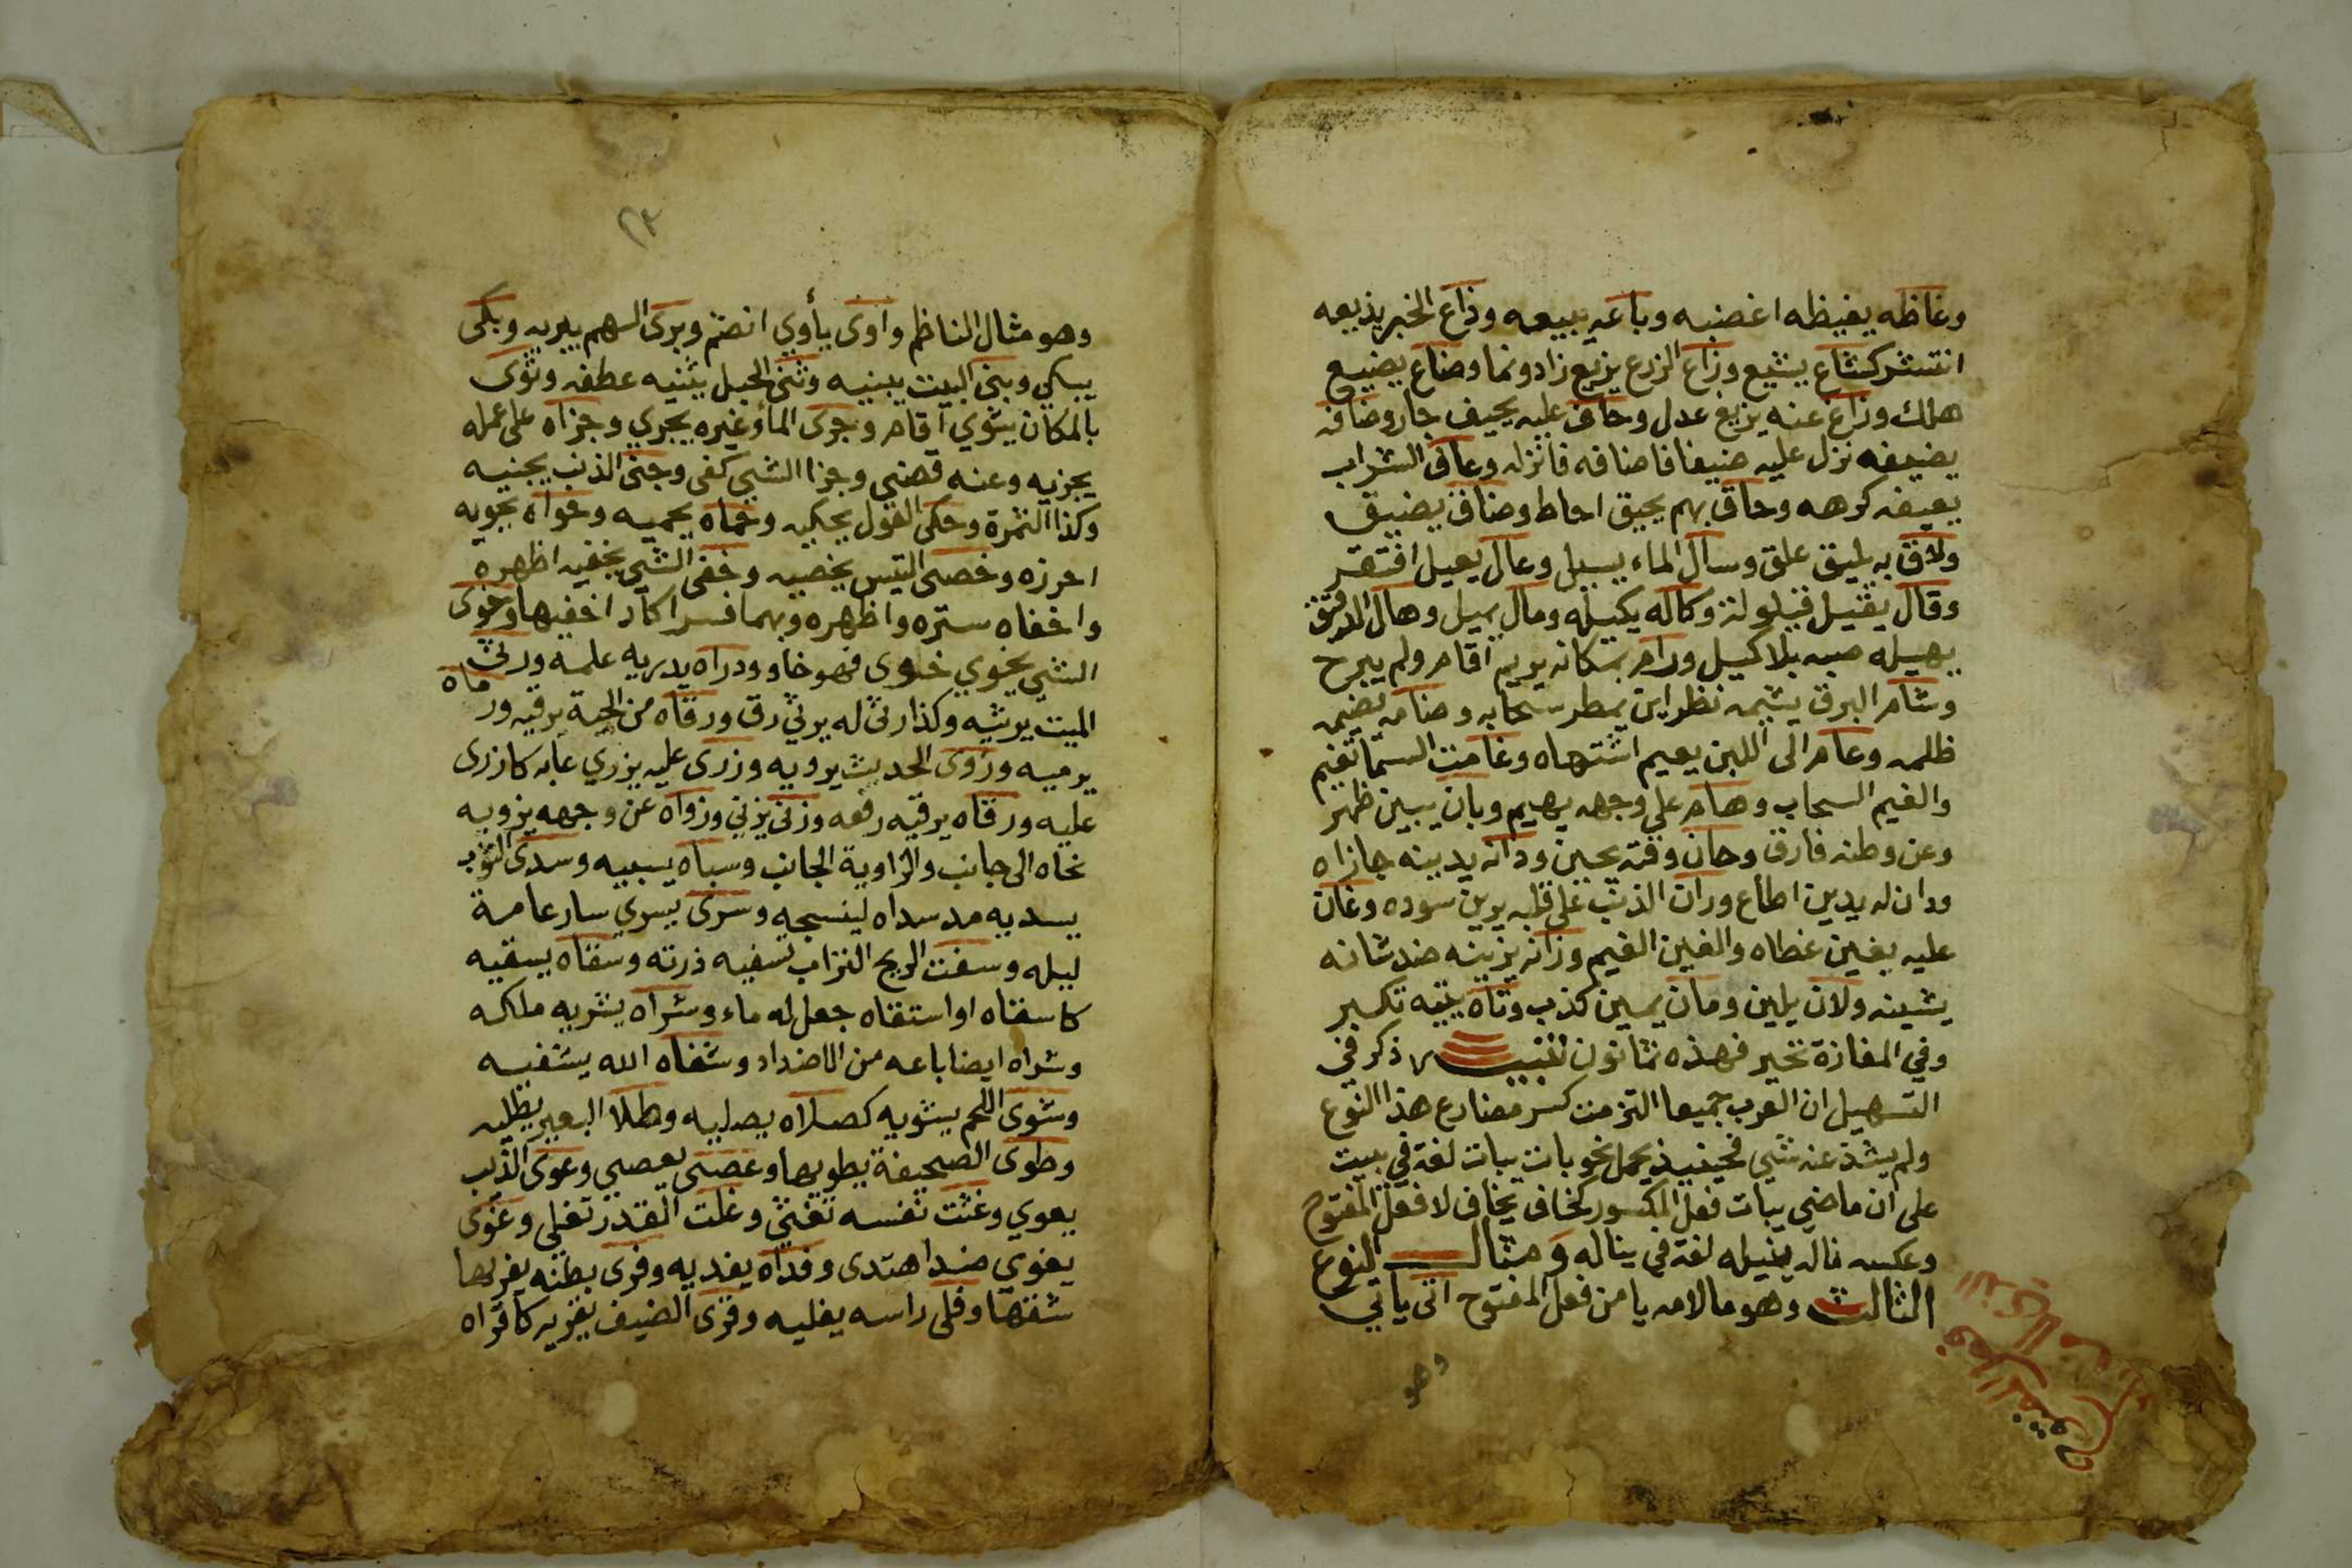 وغاظه يغيظه اغضبه وباعه يبيعه وذاع الخبر يذيعه
انتشر كشاع يشيع وزاع الزرع يزيع زاد ونما وضاع يضيع
هلك وزاغ عنه يزيغ عدل وحاف عليه يحيف جار وضافه
يضيفه نزل عليه ضيفا فاضافه فانزله وعاف الشراب
يعيفه كرهه وحاق بهم يحيق احاط وضاق يضيق
ولاق به يليق علق وسال الماء يسيل وعال يعيل افتقر
وقال يقيل قيلولة وكاله يكيله ومال يميل وهال الدقيق
يهيله صبه بلا كيل ورام بمكانه يريم اقام ولم يبرح
وشام البرق يشيمه نظر اين يمطر سحابه وضامه يضيمه
ظلمه وعام الى اللبن يعيم اشتهاه وغامت السما تغيم
والغيم السحاب وهام على وجهه يهيم وبان يبين ظهر
وعن وطنه فارق وحان وقته يحين ودانه يدينه جازاه
ودان له يدين اطاع وران الذنب على قلبه يرين سوده وغان
عليه يغين غطاه والغين الغيم وزانه يزينه ضد شانه
يشينه ولان يلين ومان يمين كذب وتاه يتيه تكبر
وفي المفازة تحير فهذه ثمانون تنبيه ذكر في
التسهيل ان العرب جميعا التزمت كسر مضارع هذا النوع
ولم يشذ عنه شي فحينيذ يحمل نحو بات يبات لغة في يبيت
على ان ماضي يبات فعل المكسور كخاف يخاف لا فعل المفتوح
وعكسه ناله ينيله لغة في يناله ومثال النوع
الثالث وهو ما لامه يا من فعل المفتوح اتى ياتي
وهو
وهو مثال الناظم واوى يأوي انضم وبرى السهم يبريه وبكى
يبكي وبنى البيت يبنيه وثنى الحبل يثنيه عطفه وثوى
بالمكان يثوي اقام وجرى الماء وغيره يجري وجزاه على عمله
يجزيه وعنه قضى وجزا الشي كفى وجنى الذنب يجنيه
وكذا الثمرة وحكى القول يحكيه وحماه يحميه وحواه يحويه
احرزه وخصى التيس يخصيه وخفى الشي يخفيه اظهره
واخفاه ستره واظهره وبهما فسر اكاد اخفيها وخوى
الشي يخوي خلوى فهو خاو ودراه يدريه علمه ورثى
الميت يرثيه وكذا رثى له يرثي رق ورقاه من الحية يرقيه ورماه
يرميه وروى الحديث يرويه وزرى عليه يزري عابه كازرى
عليه ورقاه يرقيه رفعه وزنى يزني وزواه عن وجهه يزويه
نحاه الى جانب والزاوية الجانب وسباه يسبيه وسدى الثوب
يسديه مد سداه لينسجه وسرى يسري سار عامة
ليله وسفت الريح التراب تسفيه ذرته وسقاه يسقيه
كاسقاه او استقاه جعل له ماء وشراه يشريه ملكه
وشراه ايضا باعه من الاضداد وشفاه الله يشفيه
وشوى اللحم يشويه كصلاه يصليه وطلا البعير يطليه
وطوى الصحيفة يطويها وعصى يعصي وعوى الذيب
يعوي وغثت نفسه تغثي وغلت القدر تغلي وغوى
يغوي ضد اهتدى وفداه يفديه وفرى بطنه يفريها
شقها وفلى راسه يفليه وقرى الضيف يقريه كاقراه